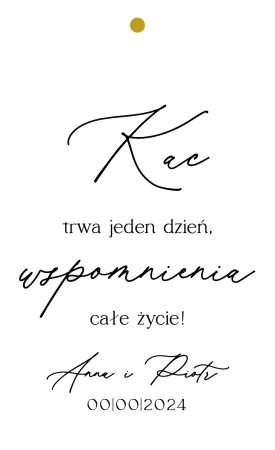 Kac
trwa jeden dzień,
wspomnienia
całe życie!
Anna i Piotr
00|00|2024